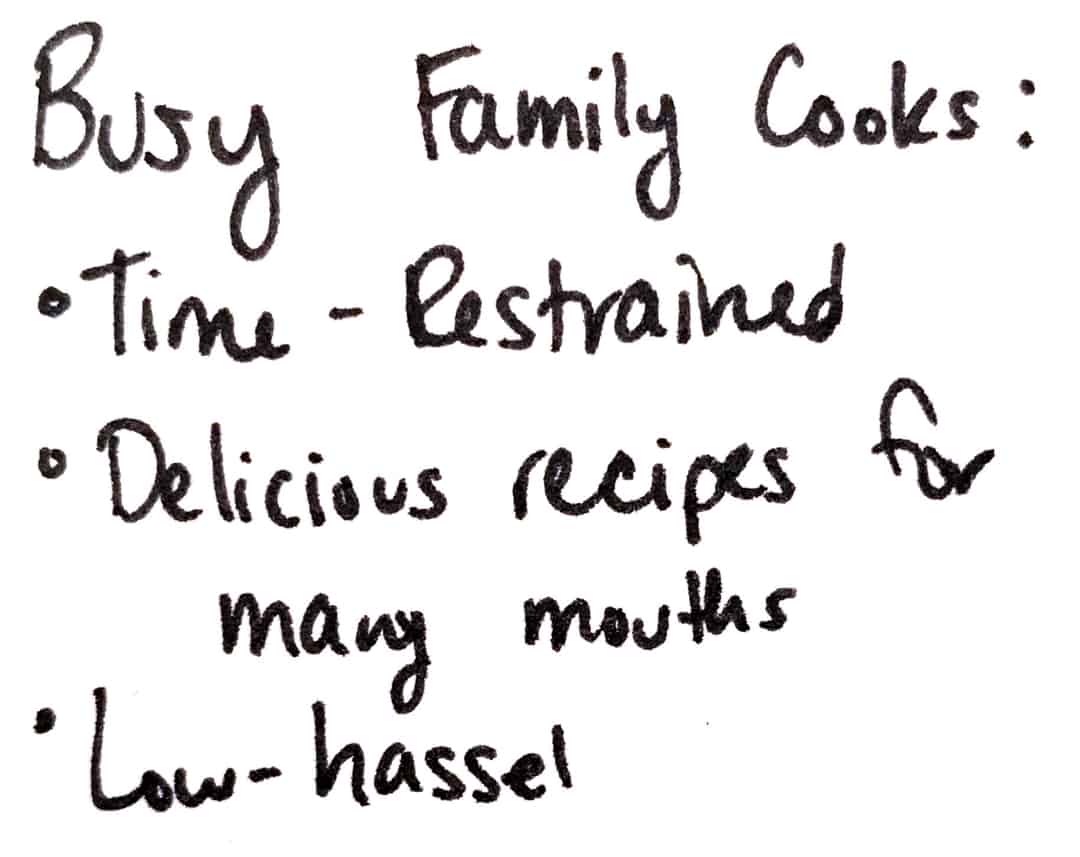 Busy Family Cooks:
• Time - Restrained
• Delicious recipes for
many mouths
• Low-hassel